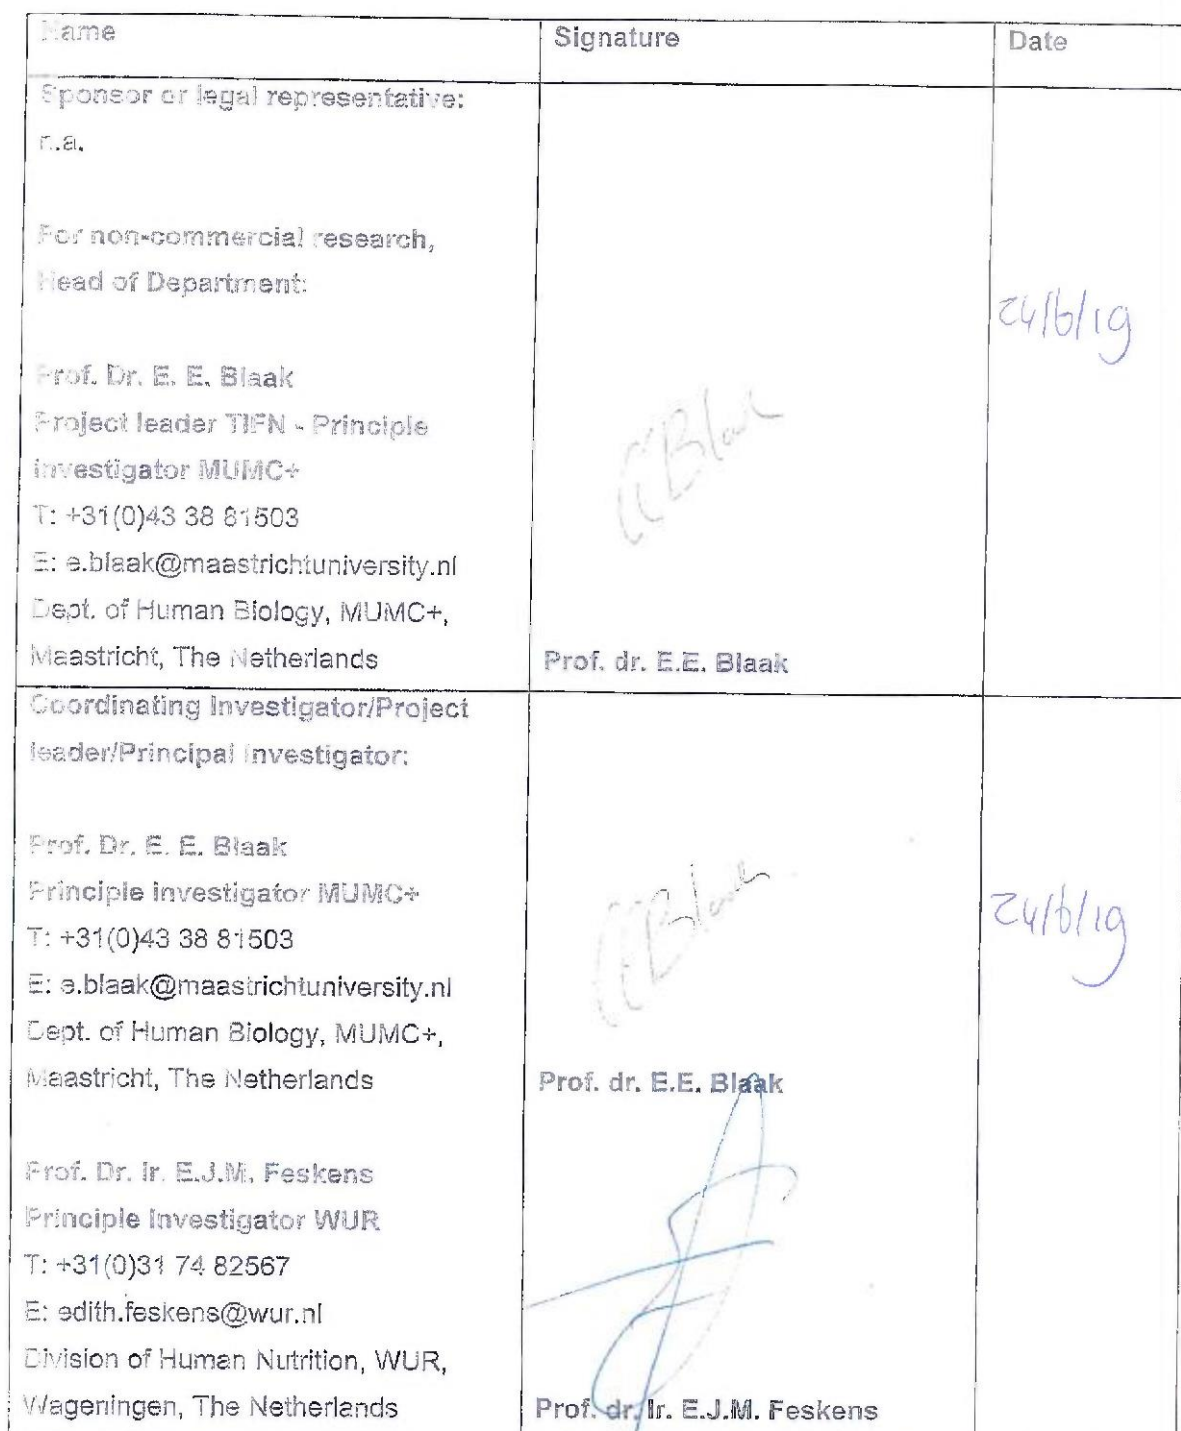 Name Signature Date
Sponsor or legal representative:
n.a.
For non-commercial research,
Head of Department:
24/6/19
Prof. Dr. E. E. Blaak
Project leader TIFN - Principle
investigator MUMC+
EEBlaak
T: +31(0)43 38 81503
E: e.blaak@maastrichtuniversity.nl
Dept. of Human Biology, MUMC+,
Maastricht, The Netherlands Prof. dr. E.E. Blaak
Coordinating Investigator/Project
leader/Principal Investigator:
Prof. Dr. E. E. Blaak
Principle investigator MUMC+
EEBlaak 24/6/19
T: +31(0)43 38 81503
E: e.blaak@maastrichtuniversity.nl
Dept. of Human Biology, MUMC+,
Maastricht, The Netherlands Prof. dr. E.E. Blaak
Prof. Dr. Ir. E.J.M. Feskens
Principle Investigator WUR
T: +31(0)31 74 82567
E: edith.feskens@wur.nl
Division of Human Nutrition, WUR,
Wageningen, The Netherlands Prof. dr. Ir. E.J.M. Feskens